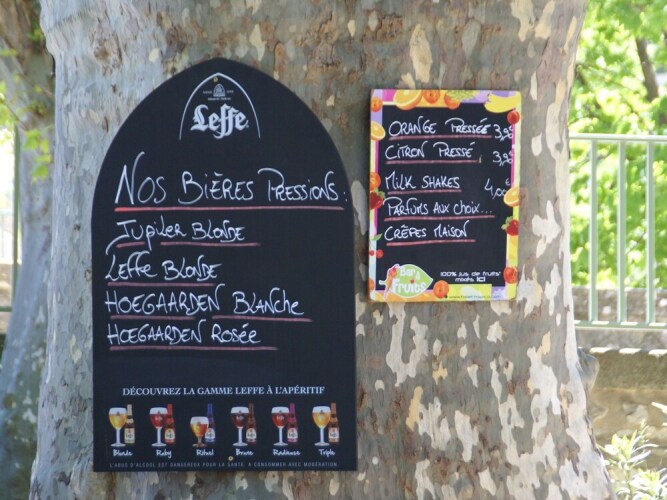 Leffe
Nos Bières Pressions:
Jupiler Blonde
Leffe Blonde
Hoegaarden Blanche
Hoegaarden Rosée
DÉCOUVREZ LA GAMME LEFFE À L'APÉRITIF
Blonde Ruby Rituel Brune Radieuse Triple
L'ABUS D'ALCOOL EST DANGEREUX POUR LA SANTÉ. A CONSOMMER AVEC MODÉRATION.
Orange Pressée 3,90
Citron Pressé 3,90
Milk Shakes 4,00€
Parfums aux choix...
Crêpes Maison
Bar à Fruits
100% jus de fruits
mixés ICI